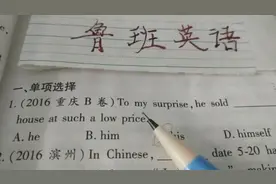 鲁班英语
一、单项选择
1. (2016 重庆 B 卷) To my surprise, he sold ____
house at such a low price.
A. he B. him his D. himself
2. (2016 滨州) In Chinese, ____ date 5-20 ha